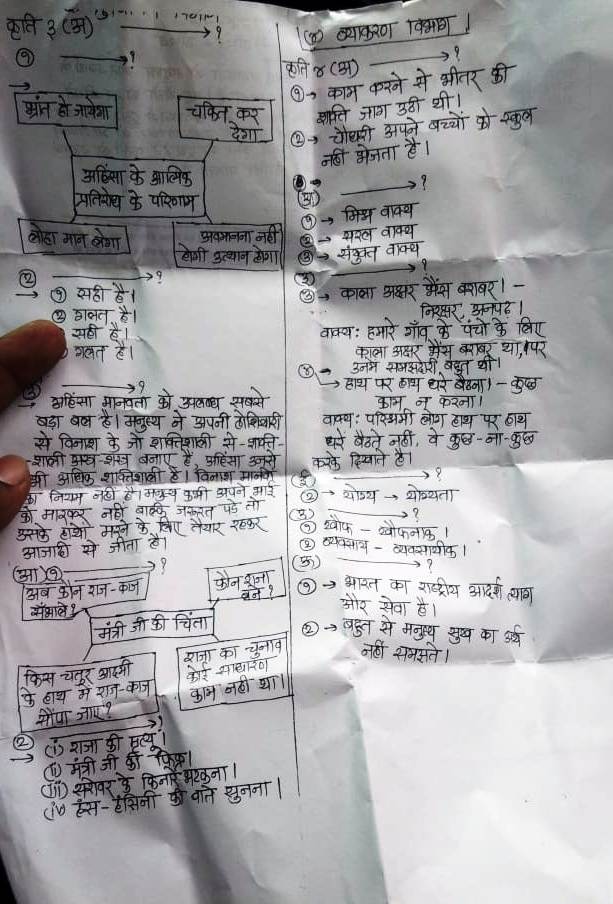 कृति ३ (अ) ?
① ?
भ्रांत हो जायेगा
चकित कर
देगा
अहिंसा के आत्मिक
प्रतिरोध के परिणाम
लोहा मान लेगा
अवमानना नहीं
होगी उत्थान होगा
② ?
① सही है।
② गलत है।
सही है।
गलत है।
?
अहिंसा मानवता को उपलब्ध सबसे
बड़ा बल है। मनुष्य ने अपनी होशियारी
से विनाश के जो शक्तिशाली से-शक्ति-
शाली अस्त्र-शस्त्र बनाए है, अहिंसा उनसे
भी अधिक शक्तिशाली है। विनाश मानवों
का नियम नहीं है। मनुष्य कभी अपने भाई
को मारकर नहीं बल्कि जरूरत पड़े तो
उसके हाथों मरने के लिए तैयार रहकर
आजादी से जीता है।
(आ) ① ?
अब कौन राज-काज
सँभाले?
कौन राजा
बने?
मंत्री जी की चिंता
किस चतुर आदमी
के हाथ में राज-काज
सौंपा जाए?
राजा का चुनाव
कोई साधारण
काम नहीं था।
② ?
(i) राजा की मृत्यू।
(ii) मंत्री जी की फ़िक्र।
(iii) सरोवर के किनारे भटकना।
(iv) हंस-हंसिनी की बाते सुनना।
व्याकरण विभाग।
कृति ४ (अ) ?
① काम करने से भीतर की
शक्ति जाग उठी थी।
② चौधरी अपने बच्चों को स्कूल
नहीं भेजता है।
(आ) ?
① मिश्र वाक्य
② सरल वाक्य
③ संयुक्त वाक्य
?
③ काला अक्षर भैंस बराबर। -
निरक्षर, अनपढ़।
वाक्य: हमारे गाँव के पंचो के लिए
काला अक्षर भैंस बराबर था, पर
उनमे समझदारी बहुत थी।
④ हाथ पर हाथ धरे बैठना। - कुछ
काम न करना।
वाक्य: परिश्रमी लोग हाथ पर हाथ
धरे बैठते नहीं, वे कुछ-ना-कुछ
करके दिखाते है।
?
② योग्य → योग्यता
?
① खौफ - खौफनाक।
② व्यवसाय - व्यवसायीक।
?
① भारत का राष्ट्रीय आदर्श त्याग
और सेवा है।
② बहुत से मनुष्य सुख का अर्थ
नहीं समझते।